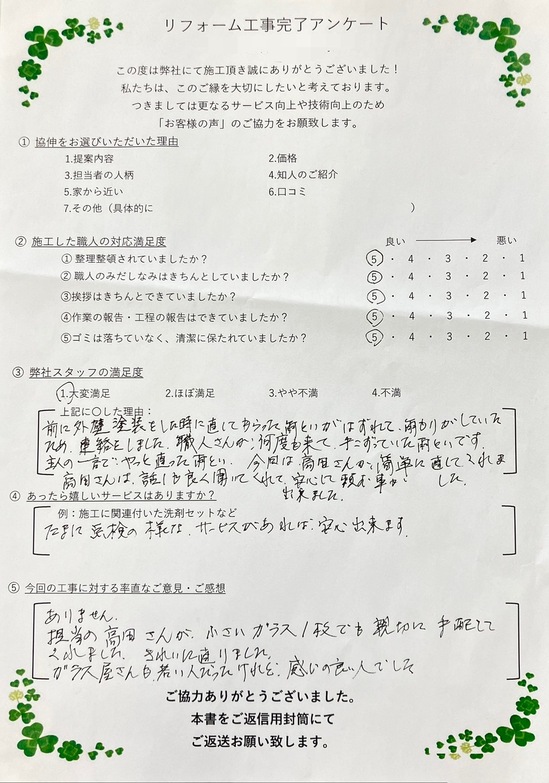 リフォーム工事完了アンケート
この度は弊社にて施工頂き誠にありがとうございました！
私たちは、このご縁を大切にしたいと考えております。
つきましては更なるサービス向上や技術向上のため
「お客様の声」のご協力をお願致します。
① 協伸をお選びいただいた理由
1.提案内容 2.価格
3.担当者の人柄 4.知人のご紹介
5.家から近い 6.口コミ
7.その他（具体的に ）
② 施工した職人の対応満足度 良い 悪い
① 整理整頓されていましたか？ 5 ・ 4 ・ 3 ・ 2 ・ 1
② 職人のみだしなみはきちんとしていましたか？ 5 ・ 4 ・ 3 ・ 2 ・ 1
③挨拶はきちんとできていましたか？ 5 ・ 4 ・ 3 ・ 2 ・ 1
④作業の報告・工程の報告はできていましたか？ 5 ・ 4 ・ 3 ・ 2 ・ 1
⑤ゴミは落ちていなく、清潔に保たれていましたか？ 5 ・ 4 ・ 3 ・ 2 ・ 1
③ 弊社スタッフの満足度
1.大変満足 2.ほぼ満足 3.やや不満 4.不満
上記に〇した理由：
前に外壁塗装をした時に直してもらった雨といがはずれて、雨もりがしていた
ため、連絡をしました。職人さんが何度も来て、手こずっていた雨といです。
主人の一言で、やっと直った雨とい。今回は高田さんが、簡単に直してくれま
した。
高田さんは、話しも良く聞いてくれて、安心して頼む事が
出来ました。
④ あったら嬉しいサービスはありますか？
例：施工に関連付いた洗剤セットなど
たまに点検の様な、サービスがあれば、安心出来ます。
⑤ 今回の工事に対する率直なご意見・ご感想
ありません。
担当の高田さんが、小さいガラス1枚でも親切に手配して
くれました。きれいに直りました。
ガラス屋さんも若い人だったけれど、感じの良い人でした
ご協力ありがとうございました。
本書をご返信用封筒にて
ご返送お願い致します。